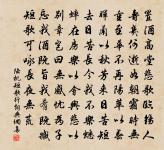 置酒高堂悲歌臨觴人
壽幾何逝如朝霜時無
重至華不再陽蘋以春
暉蘭以秋芳來日苦短
去日苦長今我不樂蟋
蟀在房樂以會興悲以
別章豈曰無感憂為子
忘我酒既旨我肴既臧
短歌可詠長夜無荒
陸機短歌行